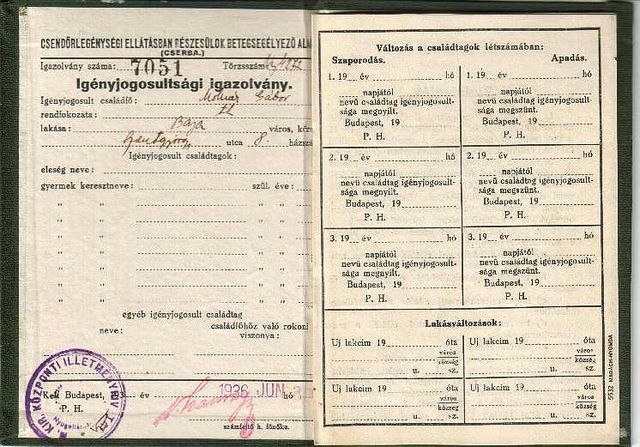 CSENDŐRLEGÉNYSÉGI ELLÁTÁSBAN RÉSZESÜLŐK BETEGSEGÉLYEZŐ AL
(CSERBA.)
Igazolvány száma: 7051 Törzsszám
Igényjogosultsági igazolvány.
Igényjogosult családfő: Molnár Gábor
rendfokozata:
lakása: Baja város, köz
utca 8. házsz
Igényjogosult családtagok:
eleség neve:
gyermek keresztneve: szül. éve:
" " " "
" " " "
" " " "
" " " "
" " " "
" " " "
egyéb igényjogosult családtag
neve: családfőhöz való rokoni
viszonya:
M. KIR. KÖZPONTI ILLETMÉNYHIV
Kelt Budapest, 1936 JUN. hó
P. H.
számfejtő h. főnöke.
Változás a családtagok létszámában:
Szaporodás. Apadás.
1. 19 év hó
napjától
nevü családtag igényjogosult-
sága megnyilt.
Budapest, 19
P. H.
1. 19 év hó
napjától
nevü családtag igényjogosult-
sága megszünt.
Budapest, 19
P. H.
2. 19 év hó
napjától
nevü családtag igényjogosult-
sága megnyilt.
Budapest, 19
P. H.
2. 19 év hó
napjától
nevü családtag igényjogosult-
sága megszünt.
Budapest, 19
P. H.
3. 19 év hó
napjától
nevü családtag igényjogosult-
sága megnyilt.
Budapest, 19
P. H.
3. 19 év hó
napjától
nevü családtag igényjogosult-
sága megszünt.
Budapest, 19
P. H.
Lakásváltozások:
Uj lakcim 19 óta
város
község
u. sz.
Uj lakcim 19 óta
város
község
u. sz.
Uj lakcim 19 óta
város
község
u. sz.
Uj lakcim 19 óta
város
község
u. sz.
5532 MADÁCH-NYOMDA